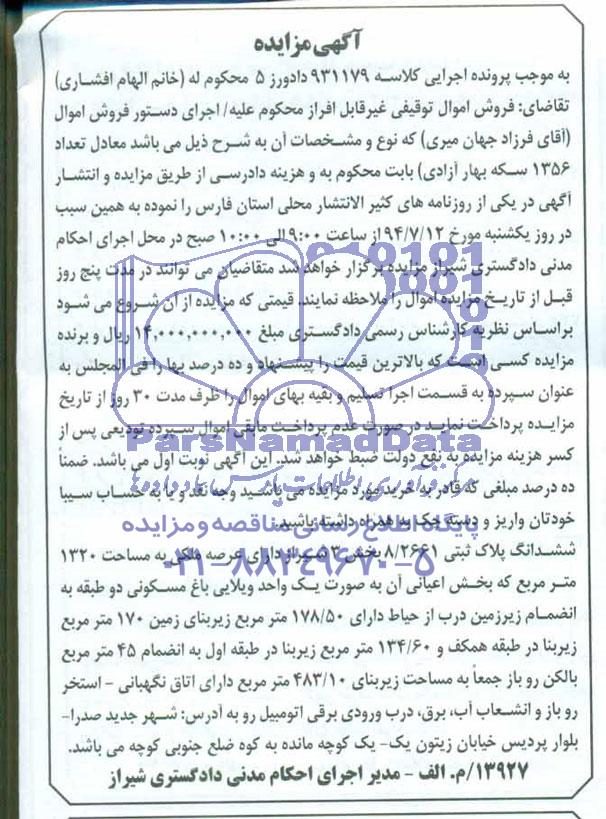 آگهی مزایده
به موجب پرونده اجرایی کلاسه ۹۳۱۱۷۹ دادورز ۵ محکوم له (خانم الهام افشاری)
تقاضای: فروش اموال توقیفی غیرقابل افراز محکوم علیه/ اجرای دستور فروش اموال
(آقای فرزاد جهان میری) که نوع و مشخصات آن به شرح ذیل می باشد معادل تعداد
۱۳۵۶ سکه بهار آزادی) بابت محکوم به و هزینه دادرسی از طریق مزایده و انتشار
آگهی در یکی از روزنامه های کثیر الانتشار محلی استان فارس را نموده به همین سبب
در روز یکشنبه مورخ ۹۴/۷/۱۲ از ساعت ۹:۰۰ الی ۱۰:۰۰ صبح در محل اجرای احکام
مدنی دادگستری شیراز مزایده برگزار خواهد شد متقاضیان می توانند در مدت پنج روز
قبل از تاریخ مزایده اموال را ملاحظه نمایند. قیمتی که مزایده از آن شروع می شود
براساس نظریه کارشناس رسمی دادگستری مبلغ ۱۴,۰۰۰,۰۰۰,۰۰۰ ریال و برنده
مزایده کسی است که بالاترین قیمت را پیشنهاد و ده درصد بها را فی المجلس به
عنوان سپرده به قسمت اجرا تسلیم و بقیه بهای اموال را ظرف مدت ۳۰ روز از تاریخ
مزایده پرداخت نماید در صورت عدم پرداخت مابقی اموال سپرده تودیعی پس از
کسر هزینه مزایده به نفع دولت ضبط خواهد شد. این آگهی نوبت اول می باشد. ضمناً
ده درصد مبلغی که قادر به خرید مورد مزایده می باشید وجه نقد و یا به حساب سیبا
خودتان واریز و دسته چک به همراه داشته باشید.
ششدانگ پلاک ثبتی ۸/۲۶۶۱ بخش ۳ شیراز دارای عرصه ملکی به مساحت ۱۳۲۰
متر مربع که بخش اعیانی آن به صورت یک واحد ویلایی باغ مسکونی دو طبقه به
انضمام زیرزمین درب از حیاط دارای ۱۷۸/۵۰ متر مربع زیربنای زمین ۱۷۰ متر مربع
زیربنا در طبقه همکف و ۱۳۴/۶۰ متر مربع زیربنا در طبقه اول به انضمام ۴۵ متر مربع
بالکن رو باز جمعاً به مساحت زیربنای ۴۸۳/۱۰ متر مربع دارای اتاق نگهبانی - استخر
رو باز و انشعاب آب، برق، درب ورودی برقی اتومبیل رو به آدرس: شهر جدید صدرا-
بلوار پردیس خیابان زیتون یک- یک کوچه مانده به کوه ضلع جنوبی کوچه می باشد.
۱۳۹۲۷/م. الف - مدیر اجرای احکام مدنی دادگستری شیراز
ParsNamadData
مرکز فرآوری اطلاعات پارس نماد داده ها
پایگاه اطلاع رسانی مناقصه و مزایده
۰۲۱-۸۸۳۴۹۶۷۰-۵